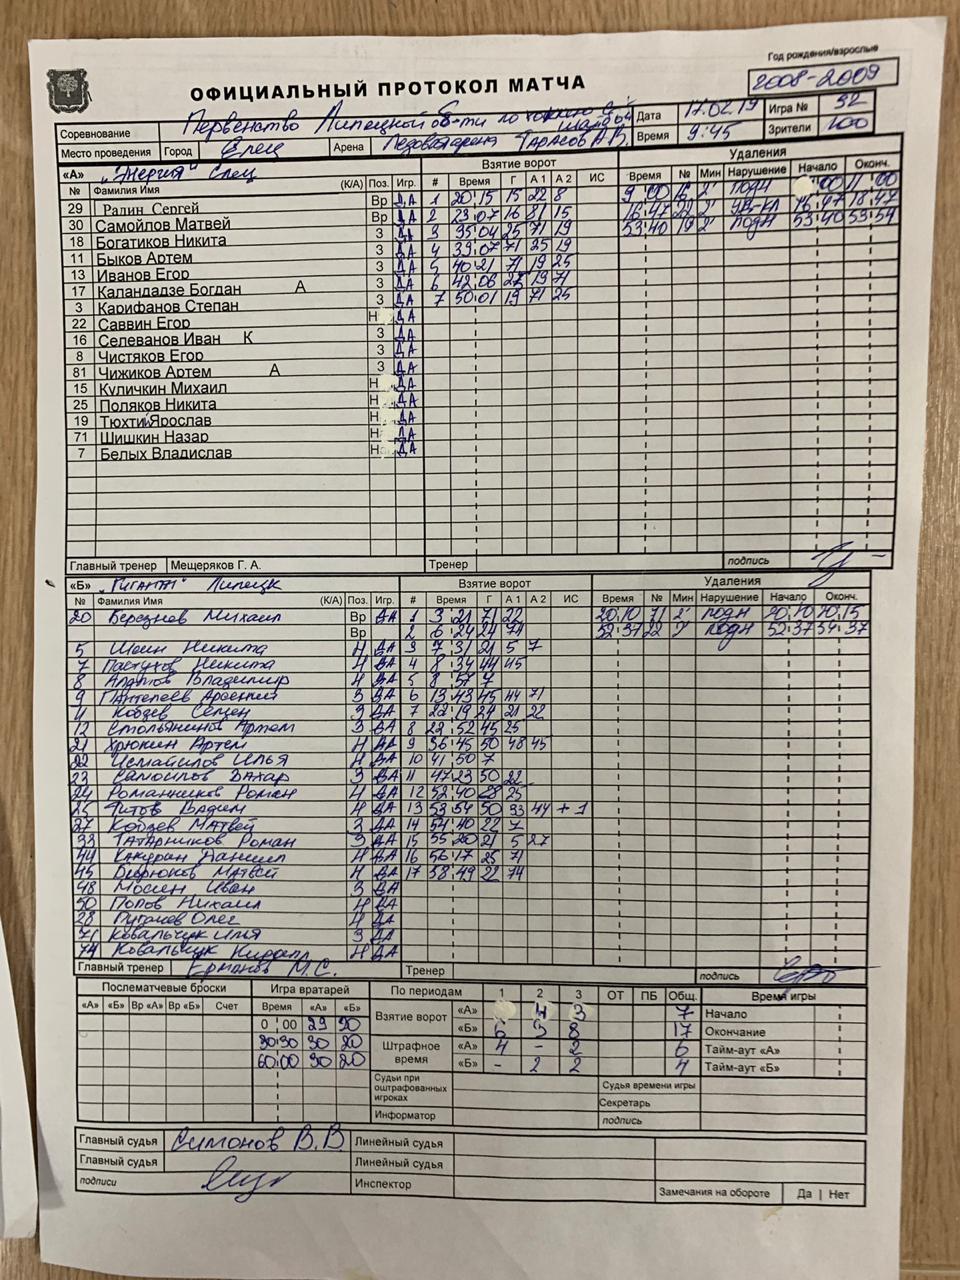 Год рождения/взрослые
2008-2009
ОФИЦИАЛЬНЫЙ ПРОТОКОЛ МАТЧА
Соревнование Первенство Липецкой об-ти по Дата 17.02.19 Игра № 32
Место проведения Город Елец Арена Ледовая арена Тарасов А.В. Время 9:45 Зрители 100
«А» "Энергия" Елец Взятие ворот Удаления
№ Фамилия Имя (К/А) Поз. Игр. # Время Г А 1 А 2 ИС Время № Мин Нарушение Начало Оконч.
29 Радин Сергей Вр ДА 1 20 15 15 22 8 9 00 16 2' подн 00 11 00
30 Самойлов Матвей Вр ДА 2 23 07 16 81 15 16 47 22 2' 16 47 18 47
18 Богатиков Никита З ДА 3 35 04 25 71 19 53 40 19 2' подн 53 40 53 54
11 Быков Артем З ДА 4 39 07 71 25 19
13 Иванов Егор З ДА 5 40 21 71 19 25
17 Каландадзе Богдан А З ДА 6 42 06 25 19 71
3 Карифанов Степан З ДА 7 50 01 19 71 25
22 Саввин Егор Н ДА
16 Селеванов Иван К З ДА
8 Чистяков Егор З ДА
81 Чижиков Артем А З ДА
15 Куличкин Михаил Н ДА
25 Поляков Никита Н ДА
19 Тюхтий Ярослав Н ДА
71 Шишкин Назар Н ДА
7 Белых Владислав Н ДА
Главный тренер Мещеряков Г. А. Тренер подпись
«Б» "Гигант" Липецк Взятие ворот Удаления
№ Фамилия Имя (К/А) Поз. Игр. # Время Г А 1 А 2 ИС Время № Мин Нарушение Начало Оконч.
20 Березнев Михаил Вр ДА 1 3 21 71 22 20 10 71 2' подн 20 10 20 15
Вр 2 6 24 24 74 52 37 22 2' подн 52 37 54 37
5 Шеин Никита Н ДА 3 7 31 21 5 7
7 Пастухов Никита Н ДА 4 8 34 44 45
8 Адамов Владимир Н ДА 5 8 57 7
9 Пантелеев Арсений З ДА 6 13 43 45 44 71
11 Кобзев Семен З ДА 7 22 19 24 21 22
12 Стольянинов Артем З ДА 8 22 52 45 25
21 Хрюкин Артем Н ДА 9 36 45 50 48 45
22 Исмайилов Илья Н ДА 10 41 50 7
23 Самойлов Захар З ДА 11 47 23 50 22
24 Романников Роман Н ДА 12 52 40 28 25
25 Титов Вадим Н ДА 13 53 54 50 33 44 + 1
27 Кобзев Матвей З ДА 14 54 40 22 7
33 Татарников Роман З ДА 15 55 20 21 5 27
44 Качуран Даниил Н ДА 16 56 17 25 71
45 Бирюков Матвей Н ДА 17 58 49 22 74
48 Мосин Иван З ДА
50 Попов Михаил Н ДА
28 Пугачев Олег Н ДА
71 Ковальчук Илья З ДА
74 Ковальчук Кирилл Н ДА
Главный тренер Ермаков М.С. Тренер подпись
Послематчевые броски Игра вратарей По периодам 1 2 3 ОТ ПБ Общ. Время игры
«А» «Б» Вр «А» Вр «Б» Счет Время «А» «Б» Взятие ворот «А» 4 3 7 Начало
0 00 29 20 «Б» 6 3 8 17 Окончание
30 30 30 20 Штрафное время «А» 4 - 2 6 Тайм-аут «А»
60 00 30 20 «Б» - 2 2 4 Тайм-аут «Б»
Судьи при оштрафованных игроках Судья времени игры
Секретарь
Информатор подпись
Главный судья Симонов В.В. Линейный судья
Главный судья Линейный судья
подписи Инспектор Замечания на обороте Да | Нет